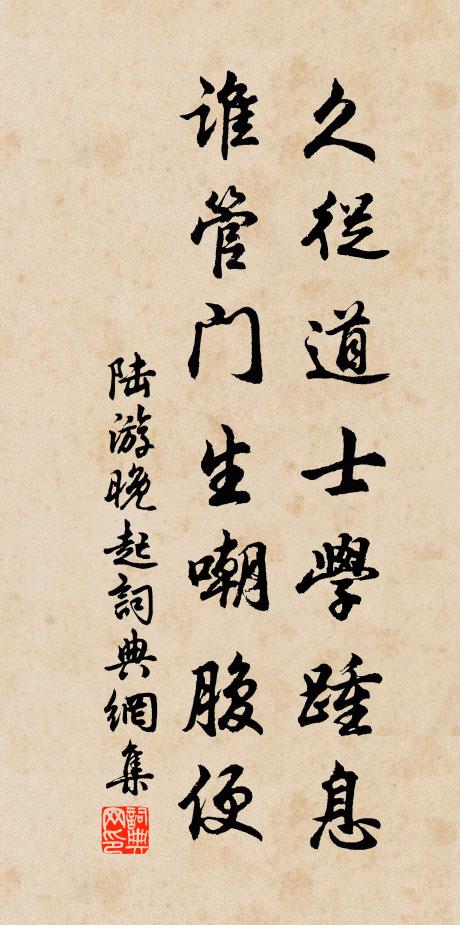 久從道士學踵息
谁管门生嘲腹便
陆游晚起詞典網集
詞典网印